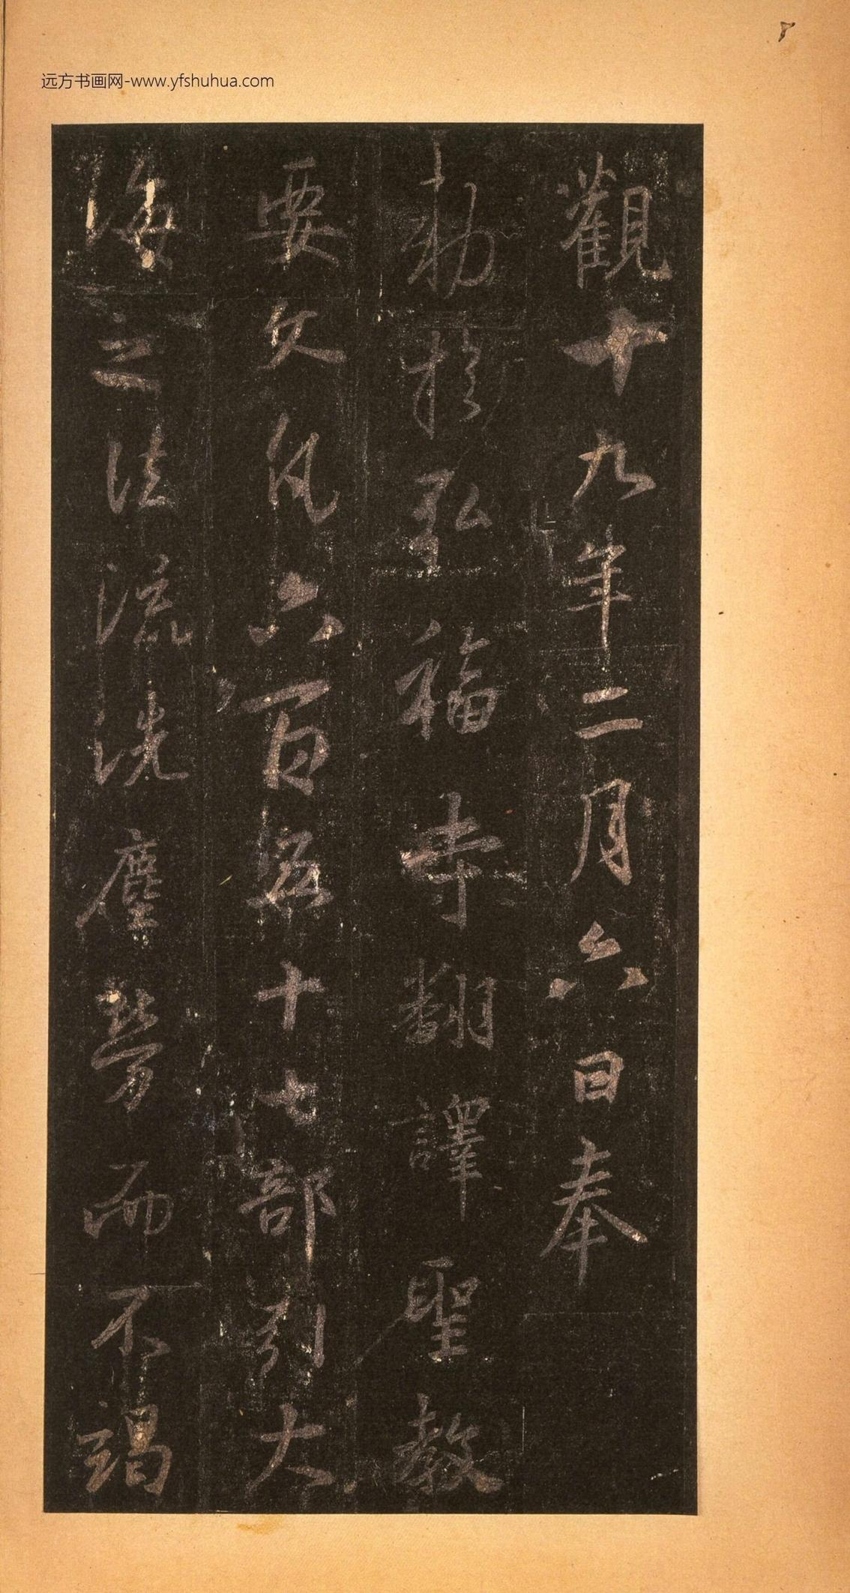 远方书画网-www.yfshuhua.com
觀十九年二月六日奉
勅於弘福寺翻譯聖教
要文凡六百五十七部引大
海之法流洗塵勞而不竭